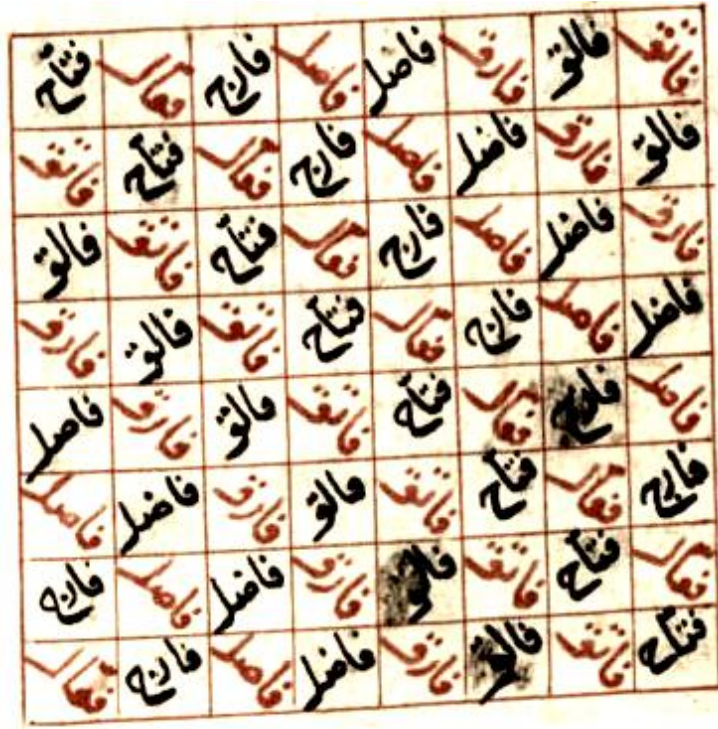 فاتق فالق فارق فاضل فاصل فارج فعال فتاح
فالق فارق فاضل فاصل فارج فعال فتاح فاتق
فارق فاضل فاصل فارج فعال فتاح فاتق فالق
فاضل فاصل فارج فعال فتاح فاتق فالق فارق
فاصل فارج فعال فتاح فاتق فالق فارق فاضل
فارج فعال فتاح فاتق فالق فارق فاضل فاصل
فعال فتاح فاتق فالق فارق فاضل فاصل فارج
فتاح فاتق فالق فارق فاضل فاصل فارج فعال